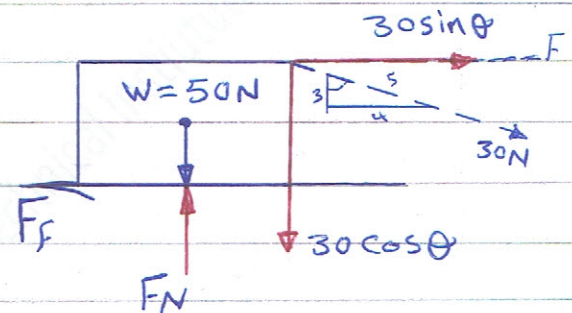 30sinθ
F
W=50N
3
5
4
30N
F_F
30cosθ
FN